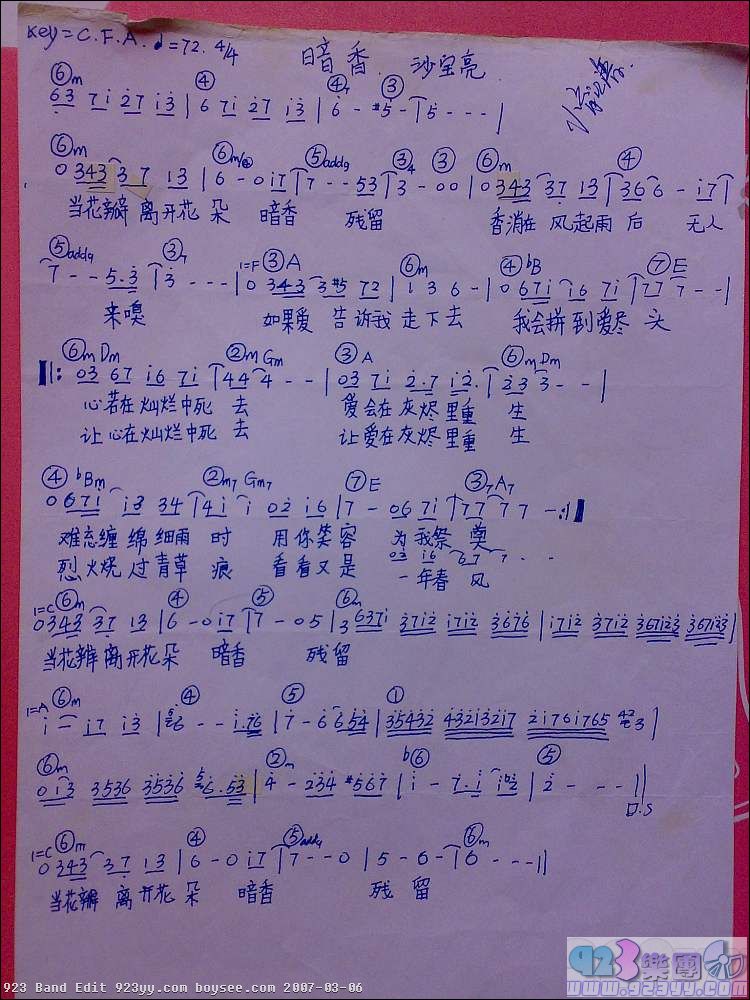 Key=C.F.A. ♩=72. 4/4
暗香 沙宝亮
⑥m ④ ④7 ③
63 7i 27 i3 | 6 7i 27 i3 | 6 - #5 - | 5 - - - |
⑥m ⑥m/④ ⑤add9 ③4 ③ ⑥m ④
0 343 3 7 13 | 6 - 0 i7 | 7 - - 53 | 3 - 0 0 | 0 343 37 13 | 36 6 - i7 |
当花瓣 离开花 朵 暗香 残留 香消在 风起雨 后 无人
⑤add9 ③7 1=F ③A ⑥m ④bB ⑦E
7 - - 5.3 | 3 - - - | 0 343 3 #5 72 | 1 3 6 - | 0 67i i6 7i | 77 7 - - |
来嗅 如果爱 告诉我 走下去 我会拼到爱尽 头
⑥m Dm ②m Gm ③ A ⑥m Dm
‖: 03 67 i6 7i | 44 4 - - | 03 7i 2.7 i2. | 23 3 - - |
心若在灿烂中死 去 爱会在灰烬里重 生
让心在灿烂中死 去 让爱在灰烬里重 生
④ bBm ②m7 Gm7 ⑦E ③7A7
0 67i i3 34 | 4i i 02 i6 | 7 - 06 7i | 77 7 7 - :‖
难忘缠 绵 细雨 时 用你笑 容 为 我祭 奠
03 i6 67 7 - -
烈火烧 过青草 痕 看看又是 一年春 风
1=C ⑥m ④ ⑤ ⑥m
0343 37 13 | 6 - 0 i7 | 7 - 0 5 | 3 637i 37i2 i7i2 3676 | i7i2 37i2 367i23 367i23 |
当花辨 离开花 朵 暗香 残留
1=A ⑥m ④ ⑤ ①
i - i7 i3 | 6 - - i.76 | 7 - 6 654 | 35432 432i32i7 2i76i765 3 |
⑥m ②m b⑥ ⑤
0i3 3536 3536 6.53 | 4 - 234 #567 | i - 7.i ib2 | 2 - - - ‖
D.S
1=C ⑥m ④ ⑤add9 ⑥m
0 343 37 13 | 6 - 0 i7 | 7 - - 0 | 5 - 6 - | 6 - - - ‖
当花瓣 离开花 朵 暗香 残 留
923樂團
www.923yy.com
923 Band Edit 923yy.com boysee.com 2007-03-06